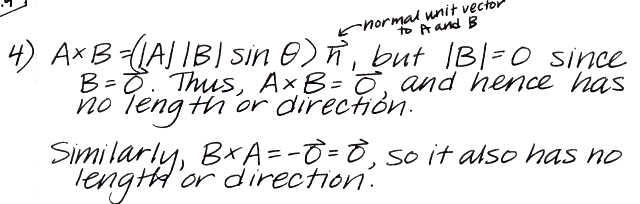 normal unit vector
to A and B
4) A×B=(|A||B| sin θ) n⃗, but |B|=0 since
B=0⃗. Thus, A×B=0⃗, and hence has
no length or direction.
Similarly, B×A=-0⃗=0⃗, so it also has no
length or direction.